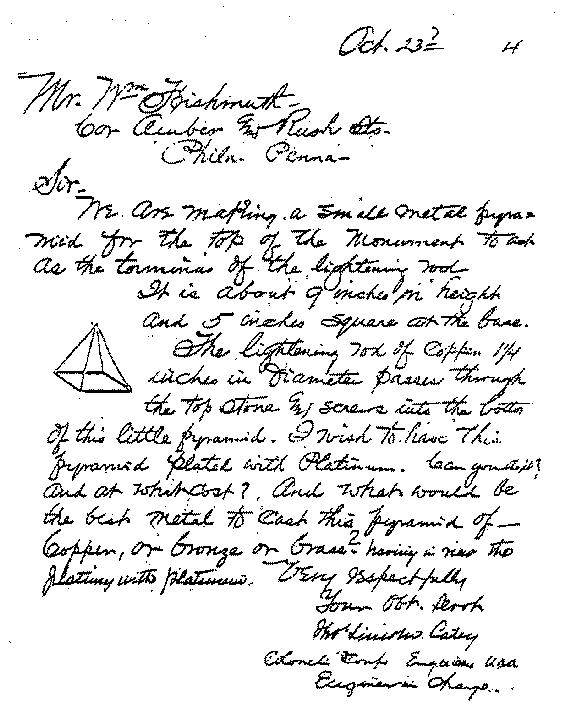 Oct. 23d 4
Mr. Wm Frishmuth-
Cor Amber & Rush Sts-
Phila- Penna-
Sir-
We are making a small metal pyra=
mid for the top of the Monument to act
as the terminus of the lightening rod
It is about 9 inches in height
and 5 inches square at the base.
The lightening rod of Copper 1 1/4
inches in Diameter passes through
the top stone & screws into the bottom
of this little pyramid. I wish to have this
pyramid plated with Platinum. Can you do it?
And at what cost? And what would be
the best metal to cast this pyramid of—
Copper, or bronze or brass? having in view the
plating with platinum. Very respectfully
Your Obt. Servt
Thos Lincoln Casey
Colonel Corps Engineers USA
Engineer in Charge.